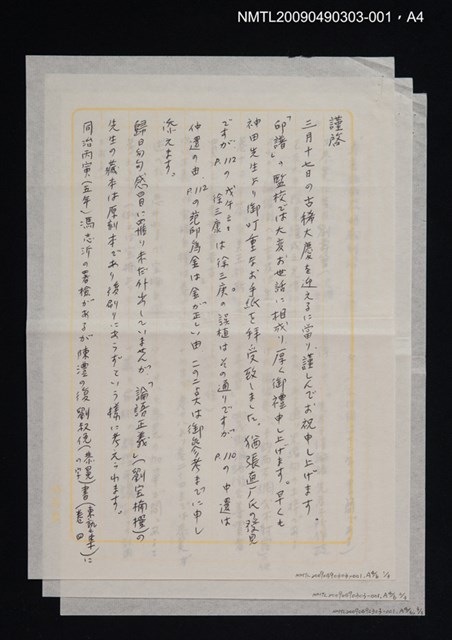 NMTL20090490303-001，A4
謹啓
三月十七日の古稀大慶を迎えるに當り、謹しんでお祝申し上げます。
「印譜」の監校では大変お世話に相成り厚く御禮申し上げます。早くも
神田先生より御叮重なお手紙を拝受致しました。猶張直厂氏の發見
ですが P.112の戊午云々は徐三庚の誤植はその通りですが P.110の中遺は
徐三慶
仲遺の由 P.112の范印為金は金が正しい由 この二点は御參考までに申し
添えます。
歸日旬旬感冒に罹り未だ外出していませんが「論語正義」(劉宝楠櫂)の
先生の藏本は原刻本であり後刷りにあらずという様に考えられます。
同治丙寅(五年)馮志沂の署檢があるが陳澧の復劉叔俛(恭冕の字)書(東塾集卷四)に
NMTL20090490303-001,A4 1/3
NMTL20090490303-001,A4 2/3
NMTL20090490303-001,A4 3/3